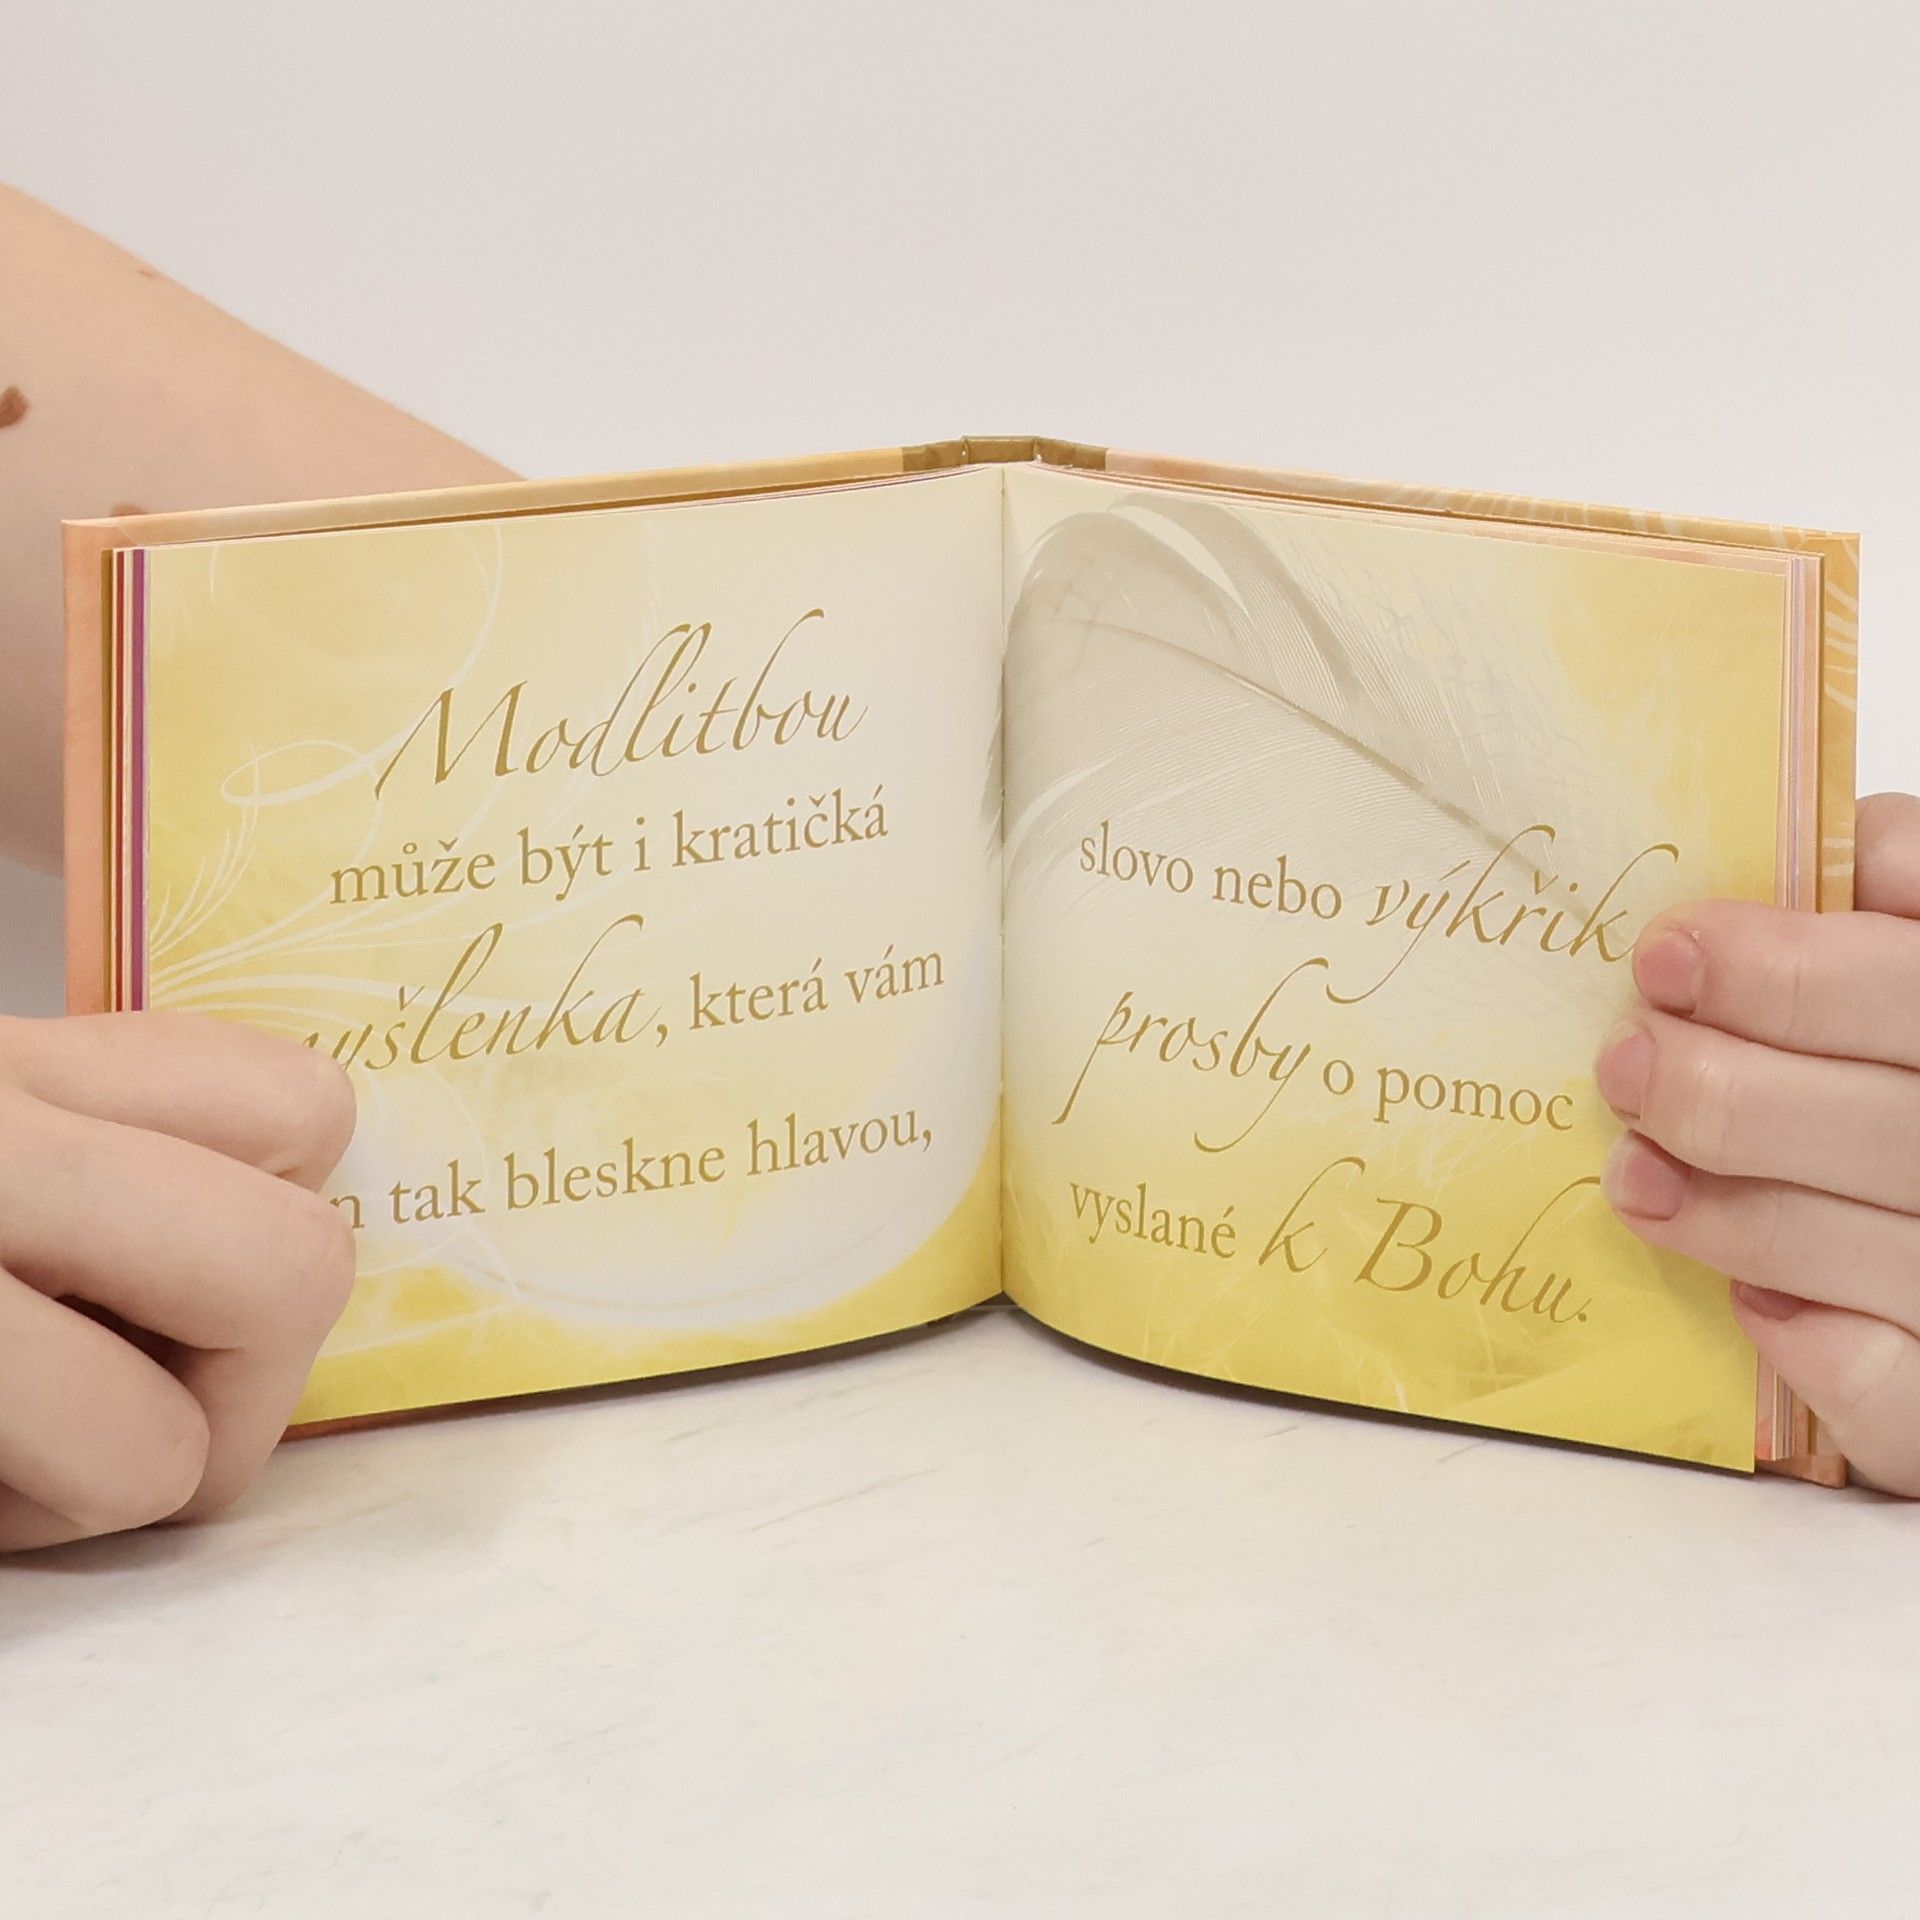 Modlitbou
může být i kratičká
myšlenka, která vám
tak bleskne hlavou,
slovo nebo výkřik
prosby o pomoc
vyslané k Bohu.